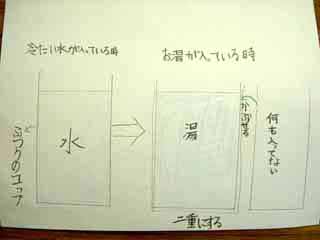 冷たい水が入っている時
お湯が入っている時
水
ふつうのコップ
湯
かぶせる
何も入ってない
二重にする